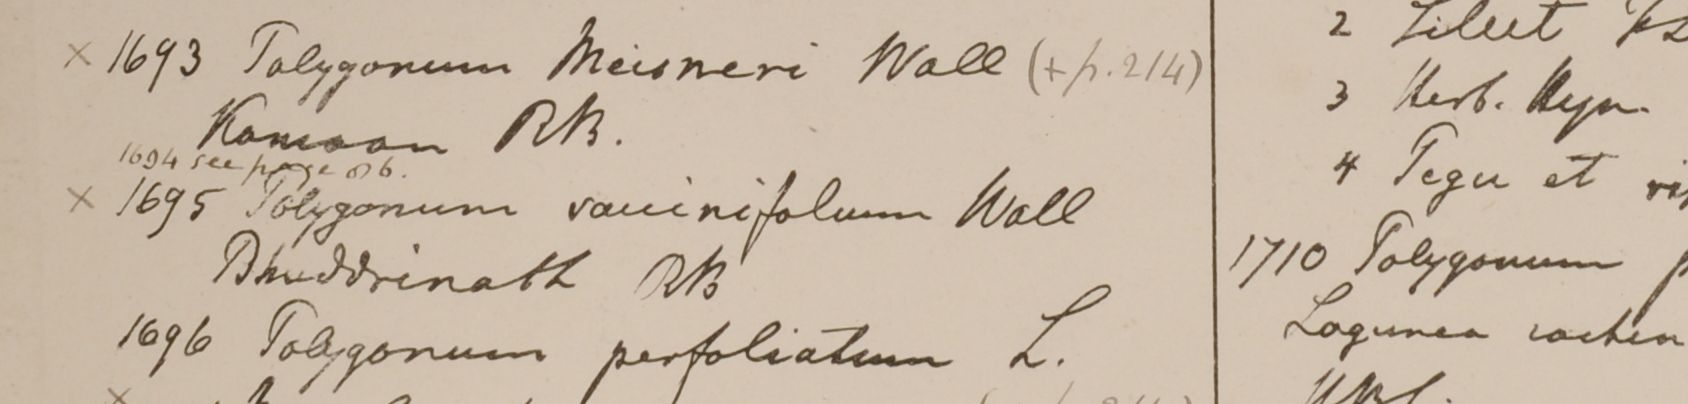 × 1693 Polygonum Meisneri Wall (+ p. 214)
Kamaon RB.
1694 see page 86.
× 1695 Polygonum vaccinifolium Wall
Bhuddrinath RB
1696 Polygonum perfoliatum L.
2 Silhet
3 Herb. Heyn.
4 Tegu et
1710 Polygonum
Lagunea cochin